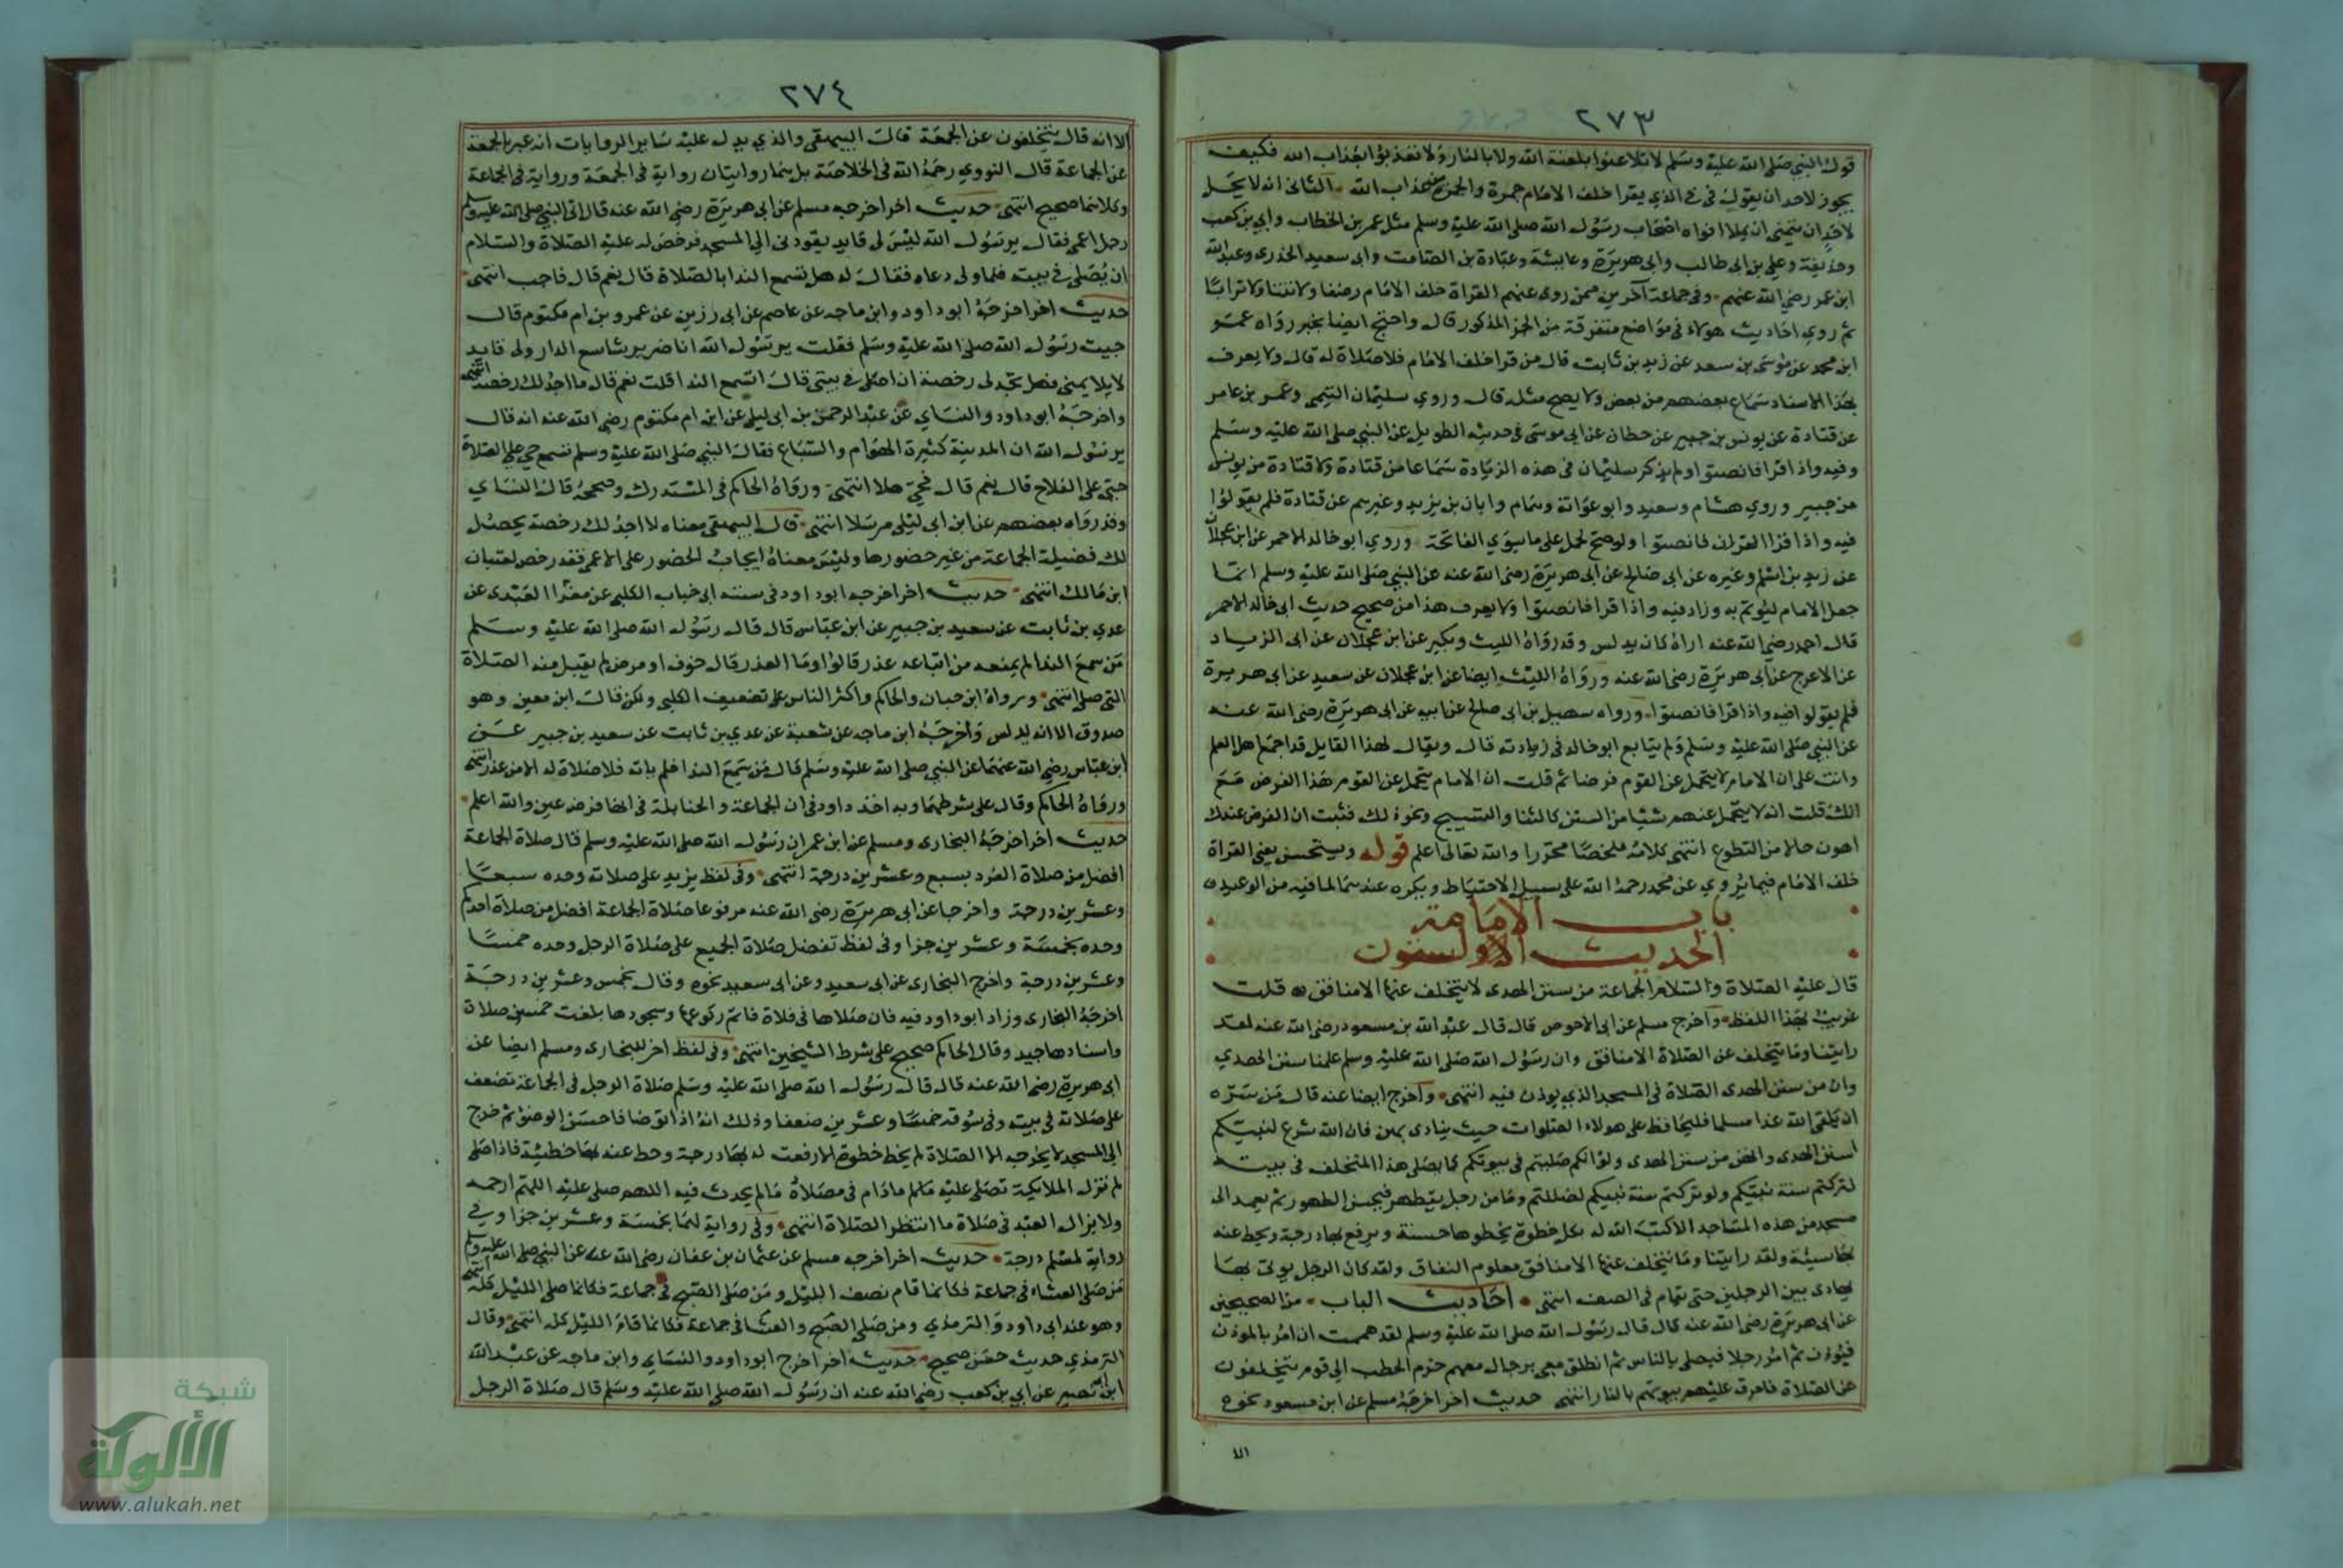 ٢٧٣
قول النبي صلى الله عليه وسلم لا تلاعنوا بلعنة الله ولا بالنار ولا تعذبوا بعذاب الله فكيف
يجوز لاحد ان يقول في في الذي يقرا خلف الامام جمرة والجمرة من عذاب الله الثاني انه لا يحل
لاحد ان يتمنى ان يملا افواه اصحاب رسول الله صلى الله عليه وسلم مثل عمر بن الخطاب وابي بن كعب
وحذيفة وعلي بن ابي طالب وابي هريرة وعايشة وعبادة بن الصامت وابي سعيد الخدري وعبد الله
ابن عمر رضي الله عنهم وفي جماعة آخرين ممن روى عنهم القراة خلف الامام رضفا ولا نتنا ولا ترابا
ثم روى احاديث هولاء في مواضع متفرقة من الجزء المذكور قال واحتج ايضا بخبر رواه عمر
ابن محمد عن موسى بن سعد عن زيد بن ثابت قال من قرا خلف الامام فلا صلاة له قال ولا يعرف
بهذا الاسناد سماع بعضهم من بعض ولا يصح مثله قال وروى سليمان التيمي وعمر بن عامر
عن قتادة عن يونس بن جبير عن حطان عن ابي موسى في حديثه الطويل عن النبي صلى الله عليه وسلم
وفيه واذا قرا فانصتوا ولم يذكر سليمان في هذه الزيادة سماعا من قتادة ولا قتادة من يونس
من جبير وروى هشام وسعيد وابو عوانة وهمام وابان بن يزيد وغيرهم عن قتادة فلم يقولوا
فيه واذا قرا القران فانصتوا ولو صح لحمل على ما سوى الفاتحة وروى ابو خالد الاحمر عن ابن عجلان
عن زيد بن اسلم وغيره عن ابي صالح عن ابي هريرة رضي الله عنه عن النبي صلى الله عليه وسلم انما
جعل الامام ليؤتم به وزاد فيه واذا قرا فانصتوا ولا يعرف هذا من صحيح حديث ابي خالد الاحمر
قال احمد رضي الله عنه اراه كان يدلس وقد رواه الليث وبكير عن ابن عجلان عن ابي الزياد
عن الاعرج عن ابي هريرة رضي الله عنه ورواه الليث ايضا عن ابن عجلان عن سعيد عن ابي هريرة
فلم يقولوا فيه واذا قرا فانصتوا ورواه سهيل بن ابي صالح عن ابيه عن ابي هريرة رضي الله عنه
عن النبي صلى الله عليه وسلم ولم يتابع ابو خالد في زيادته قال ويقال لهذا القايل قد اجمع اهل العلم
وانت على ان الامام لا يتحمل عن القوم فرضا ثم قلت ان الامام يتحمل عن القوم هذا الفرض مع
انك قلت انه لا يتحمل عنهم شئيا من السنن كالثنا والتسبيح ونحو ذلك فثبت ان الفرض عندك
اهون حالا من التطوع انتهى كلامه ملخصا محررا والله تعالى اعلم قوله ويستحسن يعني القراة
خلف الامام فيما يروى عن محمد رحمه الله على سبيل الاحتياط ويكره عندهما لما فيه من الوعيد
باب الامامة
الحديث الاول
قال عليه الصلاة والسلام الجماعة من سنن الهدى لا يتخلف عنها الا منافق قلت
غريب بهذا اللفظ واخرج مسلم عن ابي الاحوص قال قال عبد الله بن مسعود رضي الله عنه لقد
رايتنا وما يتخلف عن الصلاة الا منافق وان رسول الله صلى الله عليه وسلم علمنا سنن الهدى
وان من سنن الهدى الصلاة في المسجد الذي يوذن فيه انتهى واخرج ايضا عنه قال من سره
ان يلقى الله غدا مسلما فليحافظ على هولاء الصلوات حيث ينادى بهن فان الله شرع لنبيكم
سنن الهدى وانهن من سنن الهدى ولو انكم صليتم في بيوتكم كما يصلي هذا المتخلف في بيته
لتركتم سنة نبيكم ولو تركتم سنة نبيكم لضللتم وما من رجل يتطهر فيحسن الطهور ثم يعمد الى
مسجد من هذه المساجد الا كتب الله له بكل خطوة يخطوها حسنة ويرفع بها درجة ويحط عنه
بها سيئة ولقد رايتنا وما يتخلف عنها الا منافق معلوم النفاق ولقد كان الرجل يوتى بها
يهادى بين الرجلين حتى يقام في الصف انتهى احاديث الباب من الصحيحين
عن ابي هريرة رضي الله عنه قال قال رسول الله صلى الله عليه وسلم لقد هممت ان امر بالموذن
فيؤذن ثم امر رجلا فيصلي بالناس ثم انطلق معي برجال معهم حزم الحطب الى قوم يتخلفون
عن الصلاة فاحرق عليهم بيوتهم بالنار انتهى حديث اخر اخرجه مسلم عن ابن مسعود نحوه
الا
٢٧٤
الا انه قال يتخلفون عن الجمعة قال البيهقي والذي يدل عليه ساير الروايات انه عبر بالجمعة
عن الجماعة قال النووي رحمه الله في الخلاصة بل هما روايتان رواية في الجمعة ورواية في الجماعة
وكلاهما صحيح انتهى حديث اخر اخرجه مسلم عن ابي هريرة رضي الله عنه قال اتى النبي صلى الله عليه وسلم
رجل اعمى فقال يرسول الله ليس لي قايد يقودني الى المسجد فرخص له عليه الصلاة والسلام
ان يصلي في بيته فلما ولى دعاه فقال له هل تسمع الندا بالصلاة قال نعم قال فاجب انتهى
حديث اخر اخرجه ابو داود وابن ماجه عن عاصم عن ابي رزين عن عمرو بن ام مكتوم قال
جيت رسول الله صلى الله عليه وسلم فقلت يرسول الله انا ضرير شاسع الدار ولى قايد
لا يلايمني فهل تجد لي رخصة ان اصلي في بيتي قال اتسمع الندا قلت نعم قال ما اجد لك رخصة انتهى
واخرجه ابو داود والنساي عن عبد الرحمن بن ابي ليلى عن ابن ام مكتوم رضي الله عنه انه قال
يرسول الله ان المدينة كثيرة الهوام والسباع فقال النبي صلى الله عليه وسلم تسمع حي على الصلاة
حي على الفلاح قال نعم قال فحي هلا انتهى ورواه الحاكم في المستدرك وصححه قال النساي
وقد رواه بعضهم عن ابن ابي ليلى مرسلا انتهى قال البيهقي معناه لا اجد لك رخصة يحصل
لك فضيلة الجماعة من غير حضورها وليس معناه ايجاب الحضور على الاعمى فقد رخص لعتبان
ابن مالك انتهى حديث اخر اخرجه ابو داود في سننه ابي خباب الكلبي عن مغرا العبدي عن
عدي بن ثابت عن سعيد بن جبير عن ابن عباس قال قال رسول الله صلى الله عليه وسلم
من سمع الندا لم يمنعه من اتباعه عذر قالوا وما العذر قال خوف او مرض لم يقبل منه الصلاة
التي صلى انتهى ورواه ابن حبان والحاكم واكثر الناس على تضعيف الكلبي ولكن قال ابن معين وهو
صدوق الا انه يدلس واخرجه ابن ماجه عن شعبة عن عدي بن ثابت عن سعيد بن جبير عن
ابن عباس رضي الله عنهما عن النبي صلى الله عليه وسلم قال من سمع الندا فلم ياته فلا صلاة له الا من عذر انتهى
ورواه الحاكم وقال على شرطهما وبه اخذ داود في ان الجماعة والحنابلة في انها فرض عين والله اعلم
حديث اخر اخرجه البخاري ومسلم عن ابن عمر ان رسول الله صلى الله عليه وسلم قال صلاة الجماعة
افضل من صلاة الفرد بسبع وعشرين درجة انتهى وفي لفظ يزيد على صلاته وحده سبعا
وعشرين درجة واخرجا عن ابي هريرة رضي الله عنه مرفوعا صلاة الجماعة افضل من صلاة احدكم
وحده بخمسة وعشرين جزا وفي لفظ تفضل صلاة الجميع على صلاة الرجل وحده خمسا
وعشرين درجة واخرج البخاري عن ابي سعيد وعن ابي سعيد نحوه وقال بخمس وعشرين درجة
اخرجه البخاري وزاد ابو داود فيه فان صلاها في فلاة فاتم ركوعها وسجودها بلغت خمسين صلاة
واسنادها جيد وقال الحاكم صحيح على شرط الشيخين انتهى وفي لفظ اخر للبخاري ومسلم ايضا عن
ابي هريرة رضي الله عنه قال قال رسول الله صلى الله عليه وسلم صلاة الرجل في الجماعة تضعف
على صلاته في بيته وفي سوقه خمسا وعشرين ضعفا وذلك انه اذا توضا فاحسن الوضوء ثم خرج
الى المسجد لا يخرجه الا الصلاة لم يخط خطوة الا رفعت له بها درجة وحط عنه بها خطيئة فاذا صلى
لم تزل الملايكة تصلي عليه ما دام في مصلاه ما لم يحدث فيه اللهم صلى عليه اللهم ارحمه
ولا يزال العبد في صلاة ما انتظر الصلاة انتهى وفي رواية لهما بخمسة وعشرين جزا وفي
رواية لمسلم درجة حديث اخر اخرجه مسلم عن عثمان بن عفان رضي الله عنه عن النبي صلى الله عليه وسلم
من صلى العشاء في جماعة فكانما قام نصف الليل ومن صلى الصبح في جماعة فكانما صلى الليل كله انتهى
وهو عند ابي داود والترمذي ومن صلى الصبح والعشا في جماعة فكانما قام الليل كله انتهى وقال
الترمذي حديث حسن صحيح حديث اخر اخرج ابو داود والنساي وابن ماجه عن عبد الله
ابن نصير عن ابي بن كعب رضي الله عنه ان رسول الله صلى الله عليه وسلم قال صلاة الرجل
شبكة
الألوكة
www.alukah.net